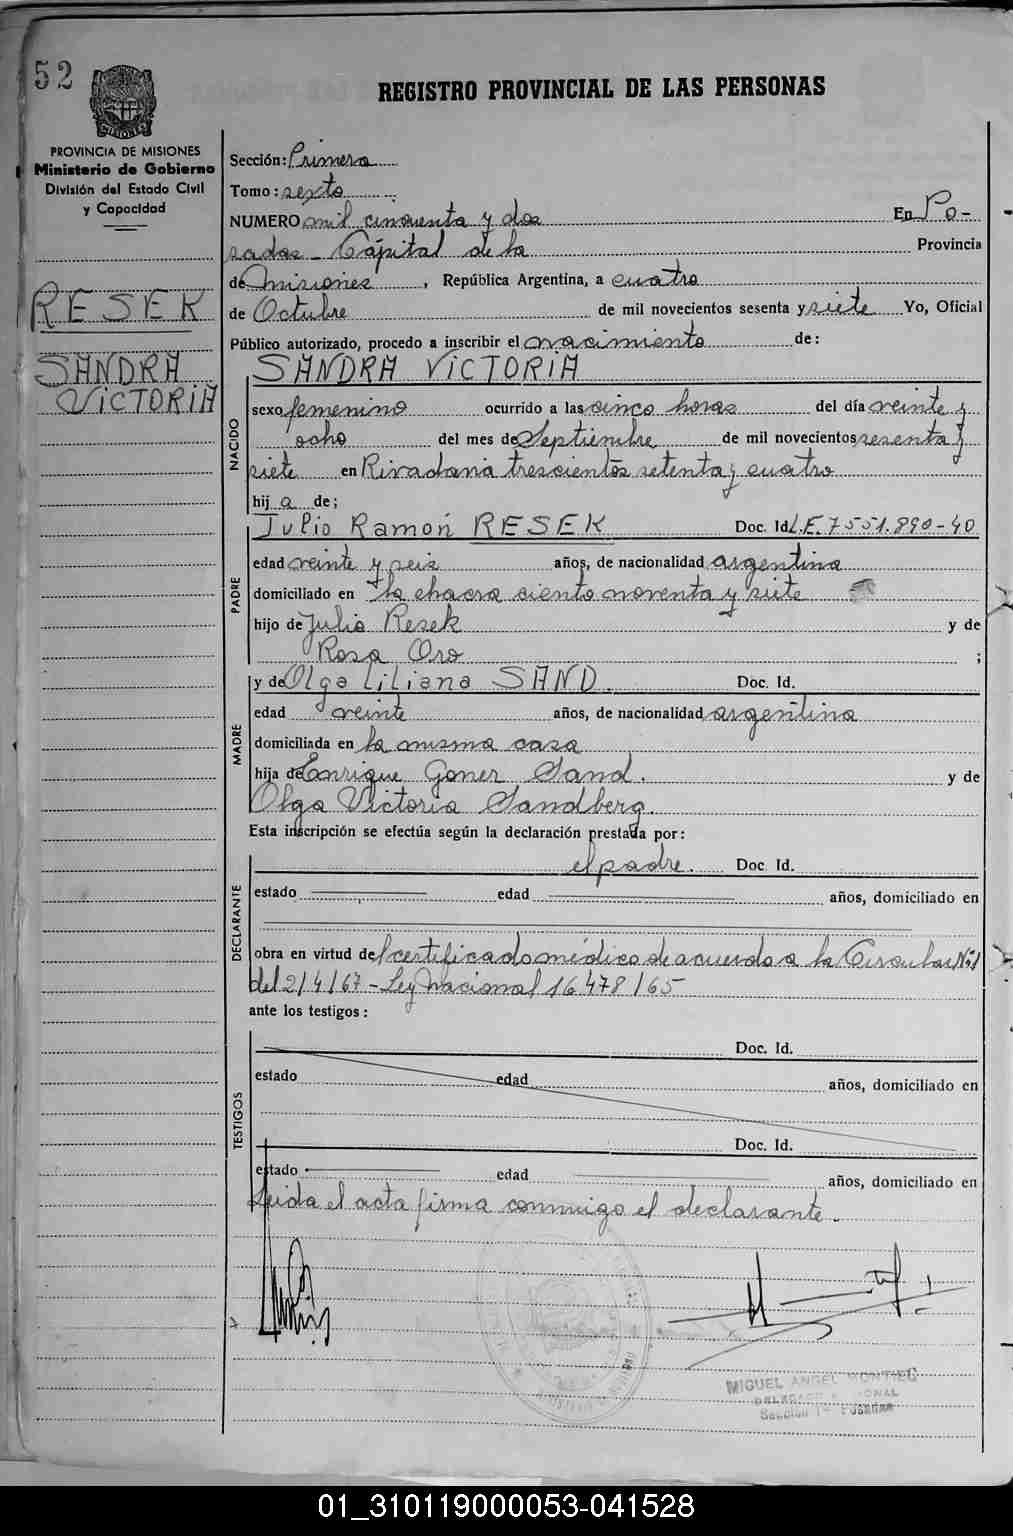 52
REGISTRO PROVINCIAL DE LAS PERSONAS
MISIONES
PROVINCIA DE MISIONES
Ministerio de Gobierno
División del Estado Civil
y Capacidad
RESEK
SANDRA
VICTORIA
Sección: Primera
Tomo: sexto
NUMERO mil cincuenta y dos En Po-
sadas - Cápital de la Provincia
de Misiones, República Argentina, a cuatro
de Octubre de mil novecientos sesenta y siete Yo, Oficial
Público autorizado, procedo a inscribir el nacimiento de:
SANDRA VICTORIA
NACIDO
sexo femenino ocurrido a las cinco horas del día veinte y
ocho del mes de Septiembre de mil novecientos sesenta y
siete en Rivadavia trescientos setenta y cuatro
hij a de;
Julio Ramón RESEK Doc. Id. L.E. 7551.890-40
PADRE
edad veinte y seis años, de nacionalidad argentina
domiciliado en la chacra ciento noventa y siete
hijo de Julio Resek y de
Rosa Oro ;
y de Olga Liliana SAND. Doc. Id.
MADRE
edad veinte años, de nacionalidad argentina
domiciliada en la misma casa
hija de Enrique Goner Sand. y de
Olga Victoria Sandberg.
Esta inscripción se efectúa según la declaración prestada por:
el padre. Doc. Id.
DECLARANTE
estado edad años, domiciliado en
obra en virtud del certificado médico de acuerdo a la Circular Nº1
del 2/4/67 - Ley Nacional 16478/65
ante los testigos:
Doc. Id.
TESTIGOS
estado edad años, domiciliado en
Doc. Id.
estado edad años, domiciliado en
Leida el acta firma conmigo el declarante.
MIGUEL ANGEL MONTIEL
Sección 1ª POSADAS
01_310119000053-041528